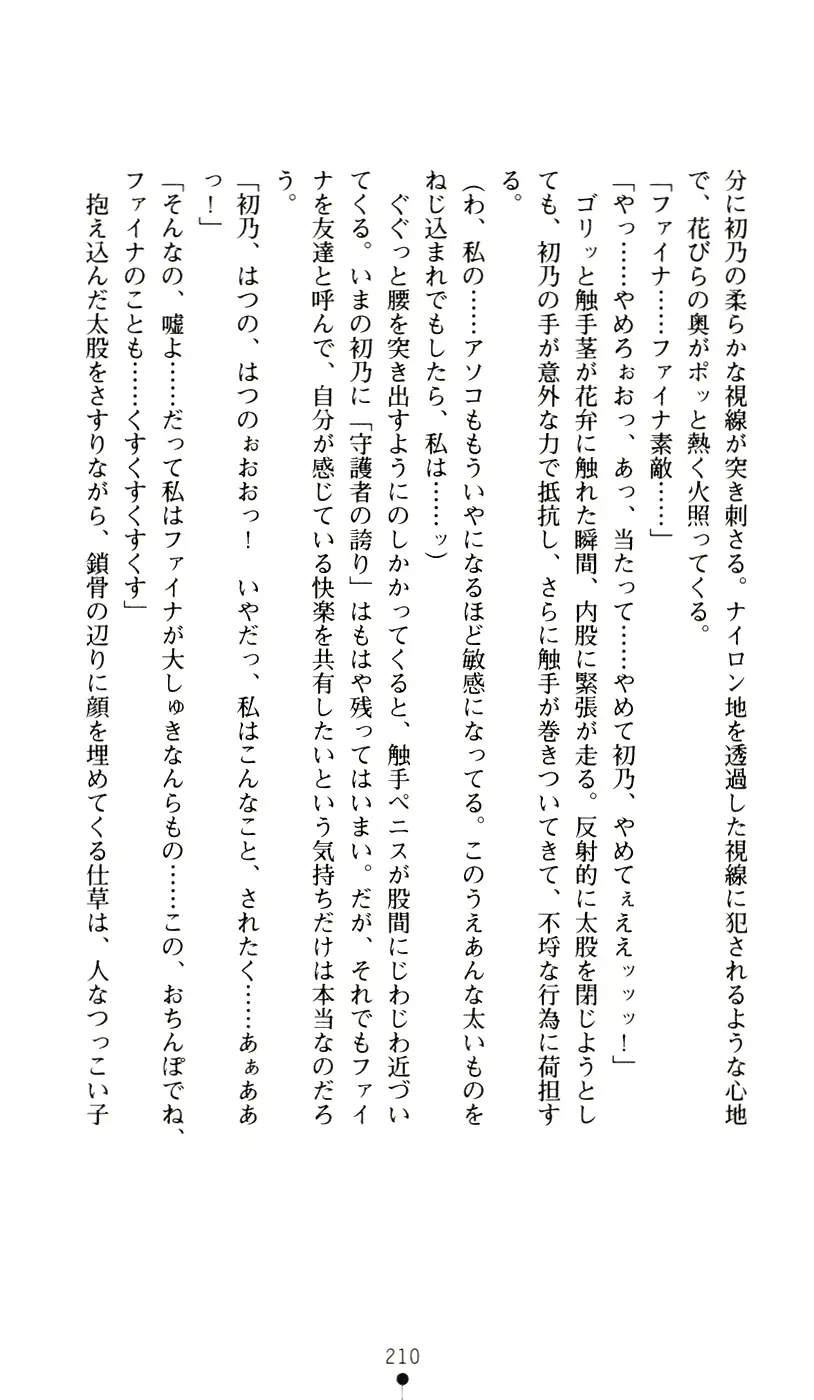 分に初乃の柔らかな視線が突き刺さる。ナイロン地を透過した視線に犯されるような心地
で、花びらの奥がポッと熱く火照ってくる。
「ファイナ……ファイナ素敵……」
「やっ……やめろぉおっ、あっ、当たって……やめて初乃、やめてぇええッッッ！」
ゴリッと触手茎が花弁に触れた瞬間、内股に緊張が走る。反射的に太股を閉じようとし
ても、初乃の手が意外な力で抵抗し、さらに触手が巻きついてきて、不埒な行為に荷担す
る。
（わ、私の……アソコももういやになるほど敏感になってる。このうえあんな太いものを
ねじ込まれでもしたら、私は……ッ）
ぐぐっと腰を突き出すようにのしかかってくると、触手ペニスが股間にじわじわ近づい
てくる。いまの初乃に「守護者の誇り」はもはや残ってはいまい。だが、それでもファイ
ナを友達と呼んで、自分が感じている快楽を共有したいという気持ちだけは本当なのだろ
う。
「初乃、はつの、はつのぉおおっ！　いやだっ、私はこんなこと、されたく……あぁああ
っ！」
「そんなの、嘘よ……だって私はファイナが大しゅきなんらもの……この、おちんぽでね、
ファイナのことも……くすくすくすくす」
抱え込んだ太股をさすりながら、鎖骨の辺りに顔を埋めてくる仕草は、人なつっこい子
210